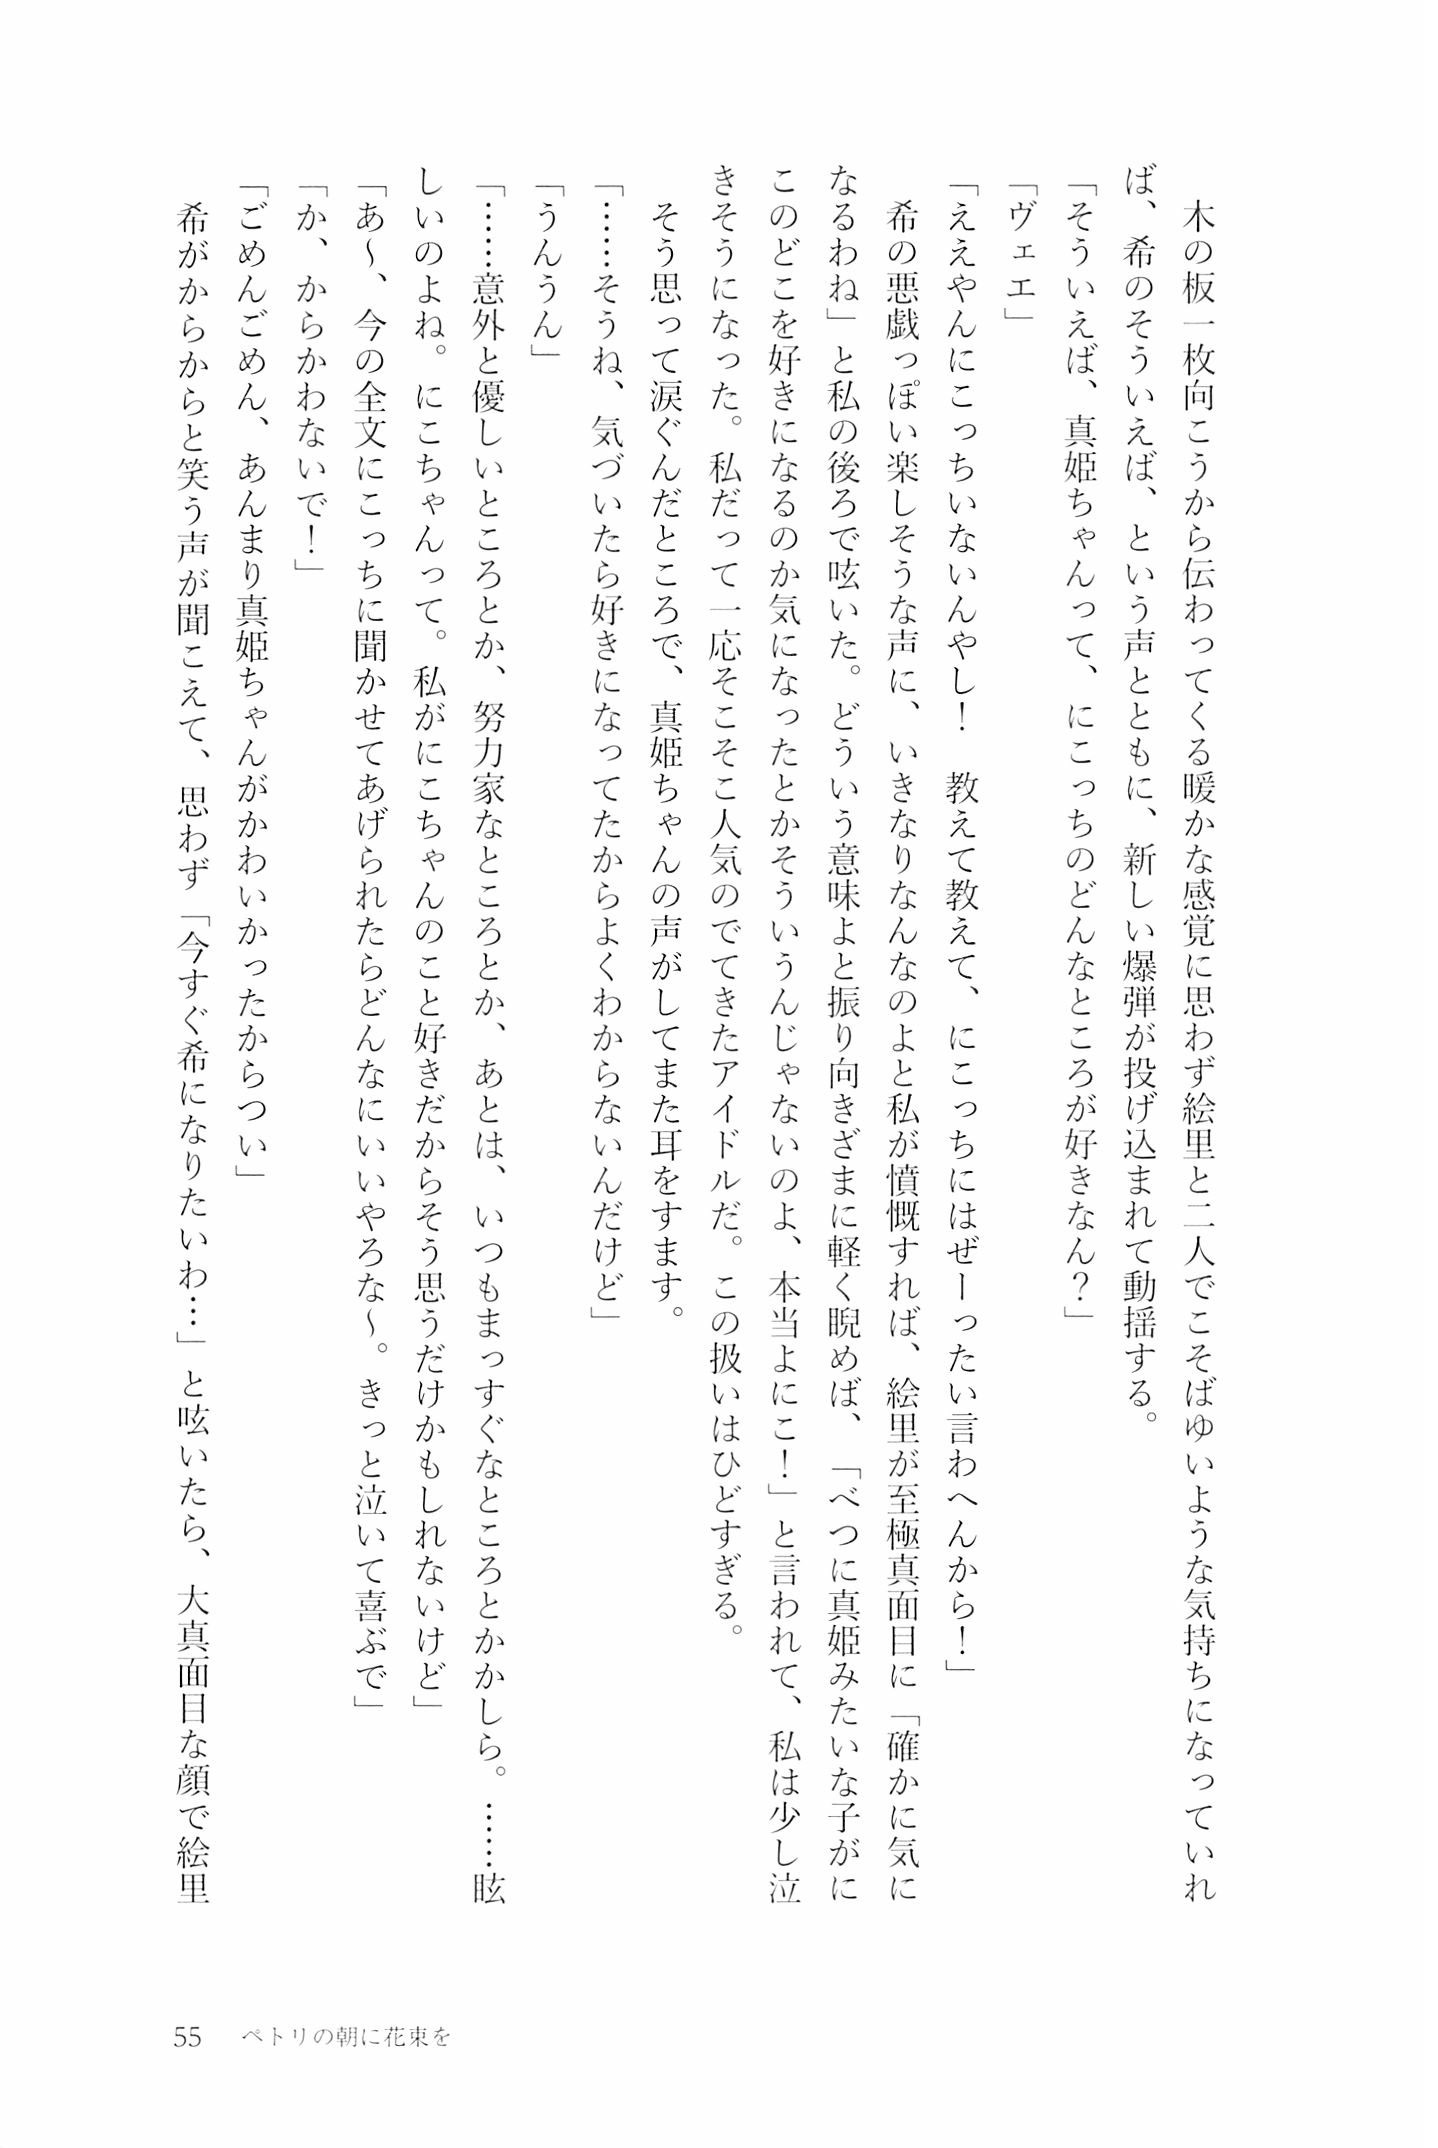 木の板一枚向こうから伝わってくる暖かな感覚に思わず絵里と二人でこそばゆいような気持ちになっていれ
ば、希のそういえば、という声とともに、新しい爆弾が投げ込まれて動揺する。
「そういえば、真姫ちゃんって、にこっちのどんなところが好きなん？」
「ヴェエ」
「ええやんにこっちいないんやし！　教えて教えて、にこっちにはぜーったい言わへんから！」
　希の悪戯っぽい楽しそうな声に、いきなりなんなのよと私が憤慨すれば、絵里が至極真面目に「確かに気に
なるわね」と私の後ろで呟いた。どういう意味よと振り向きざまに軽く睨めば、「べつに真姫みたいな子がに
このどこを好きになるのか気になったとかそういうんじゃないのよ、本当よにこ！」と言われて、私は少し泣
きそうになった。私だって一応そこそこ人気のでてきたアイドルだ。この扱いはひどすぎる。
　そう思って涙ぐんだところで、真姫ちゃんの声がしてまた耳をすます。
「……そうね、気づいたら好きになってたからよくわからないんだけど」
「うんうん」
「……意外と優しいところとか、努力家なところとか、あとは、いつもまっすぐなところとかかしら。……眩
しいのよね。にこちゃんって。私がにこちゃんのこと好きだからそう思うだけかもしれないけど」
「あ〜、今の全文にこっちに聞かせてあげられたらどんなにいいやろな〜。きっと泣いて喜ぶで」
「か、からかわないで！」
「ごめんごめん、あんまり真姫ちゃんがかわいかったからつい」
　希がからからと笑う声が聞こえて、思わず「今すぐ希になりたいわ…」と呟いたら、大真面目な顔で絵里
55　ペトリの朝に花束を